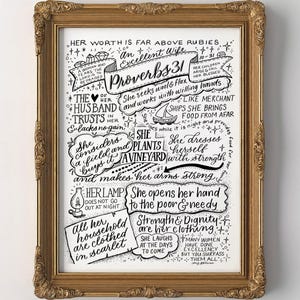 HER WORTH IS FAR ABOVE RUBIES
an Excellent Wife
HER CHILDREN
HER BLESSED
Proverbs 31
She seeks wool & flax
and works with willing hands
THE HEART
HUSBAND
TRUSTS IN HER
& lacks no gain
LIKE MERCHANT
SHIPS SHE BRINGS
FOOD FROM AFAR
while it is night
She considers
a field and
buys it
SHE
PLANTS
A VINEYARD
She dresses
herself
with strength
and makes her arms strong
HER LAMP
DOES NOT GO
OUT AT NIGHT
She opens her hand
to the poor & needy
Strength & Dignity
are her clothing
All her
household
are clothed
in scarlet
SHE LAUGHS
AT THE DAYS
TO COME
MANY WOMEN
HAVE DONE
EXCELLENTLY
BUT YOU SURPASS
THEM ALL